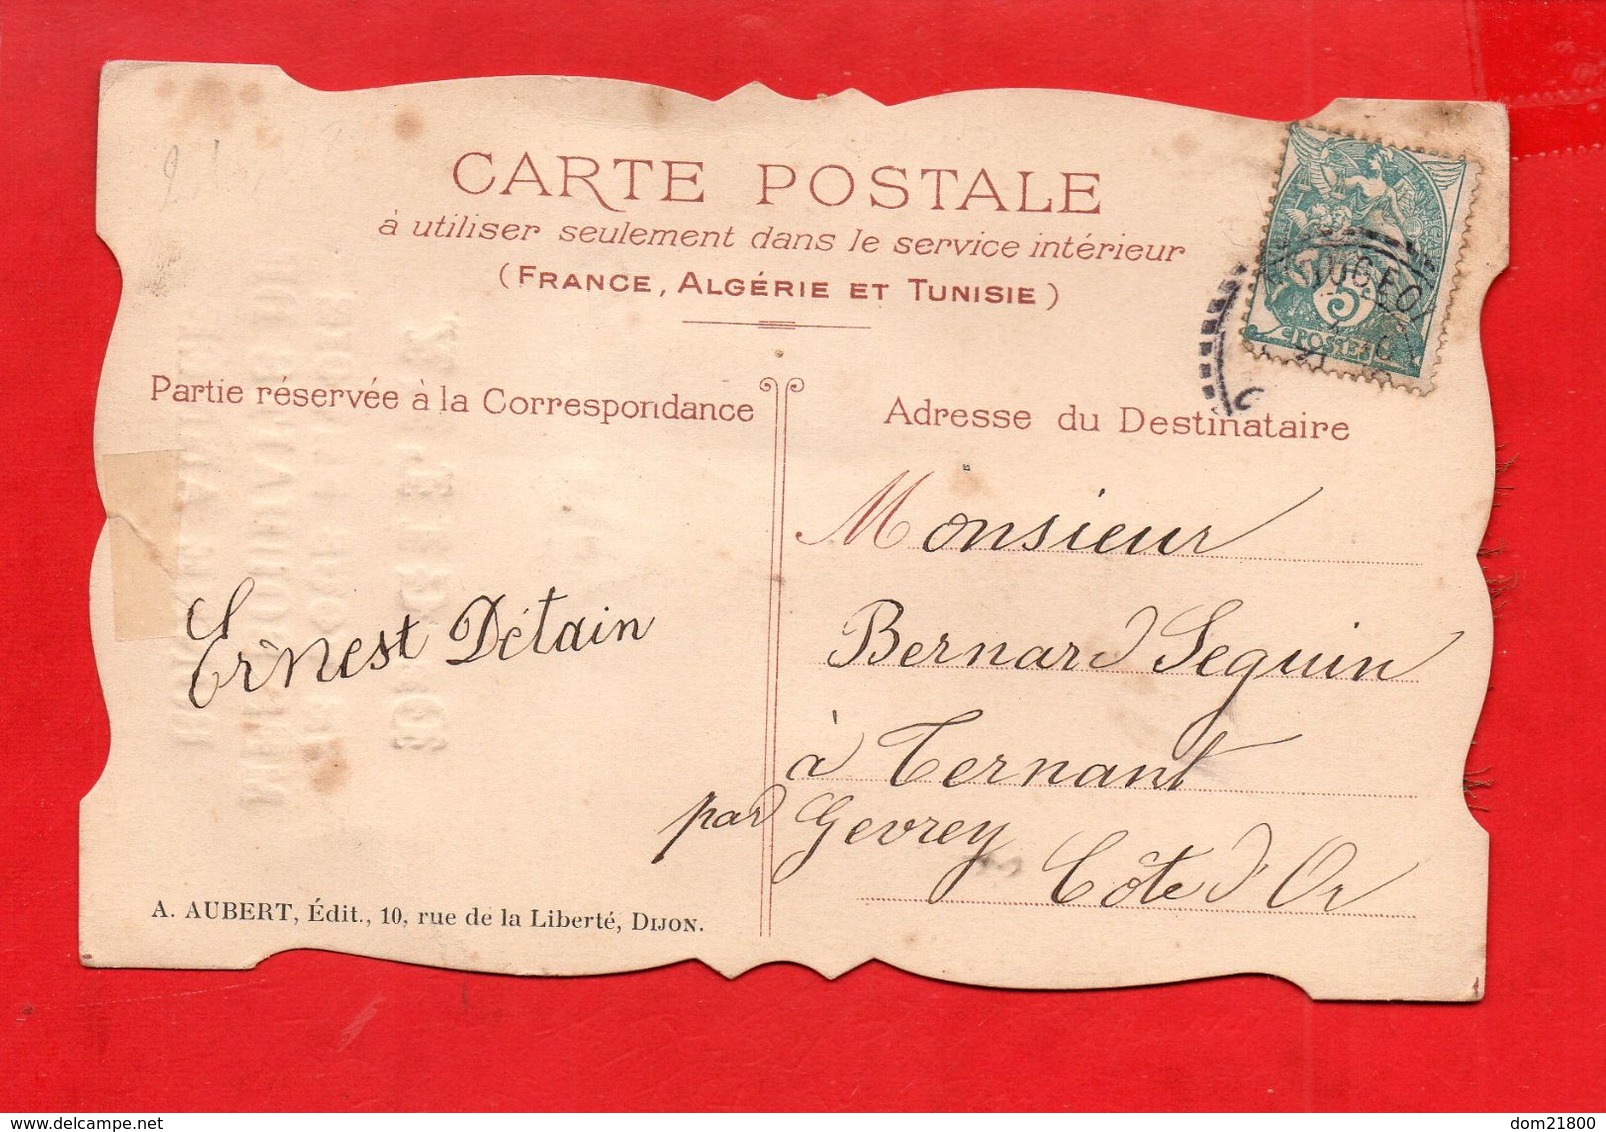 CARTE POSTALE
à utiliser seulement dans le service intérieur
(FRANCE, ALGÉRIE ET TUNISIE)
Partie réservée à la Correspondance
Adresse du Destinataire
5c
POSTES
Monsieur
Bernard Seguin
à Ternant
par Gevrey
Côte d'Or
Ernest Détain
A. AUBERT, Édit., 10, rue de la Liberté, DIJON.
dom21800